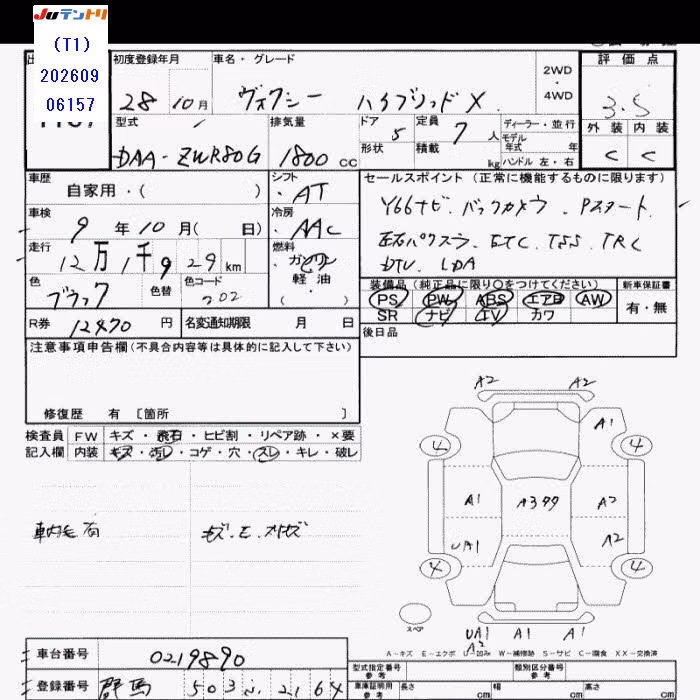 Juテントリ
(T1)
202609
06157
初度登録年月
車名・グレード
2WD
・
4WD
評価点
28 10月
ヴォクシー ハイブリッドX
3.5
型式
排気量
ドア
定員
ディーラー・並行
外装 内装
DAA-ZWR80G
1800 CC
5
7人
モデル年式 年
形状
積載 kg
ハンドル 左・右
C C
車歴
シフト
セールスポイント(正常に機能するものに限ります)
自家用・( )
AT
車検
冷房
Y66ナビ、バックカメラ、Pスタート
9年10月( 日)
AAC
左右パワスラ、ETC、TSS、TRC
走行
燃料
12万1千929km
ガソリン
軽油
・( )
DTV、LDA
色
色替
色コード
ブラック
202
装備品(純正品に限り○をつけてください)
新車保証書
PS PW ABS エアB AW
有・無
SR ナビ TV カワ
R券
12470円
名変通知期限 月 日
後日品
注意事項申告欄(不具合内容等は具体的に記入して下さい)
修復歴 有 〔箇所 〕
検査員 FW キズ・飛石・ヒビ割・リペア跡・×要
記入欄 内装 キズ・汚レ・コゲ・穴・スレ・キレ・破レ
A2 A2
A1
4 4
A1 A377 A2
UA1 A2
4 4
スペア
UA1 A1 A1
A2
キズ、E、
A-キズ E-エクボ U-凹み W-補修跡 S-サビ C-腐食 XX-交換済
車台番号
0219890
登録番号
群馬 503 2164
型式指定番号 参考
類別区分番号 参考
車庫証明用 参考
長さ cm
幅 cm
高さ cm